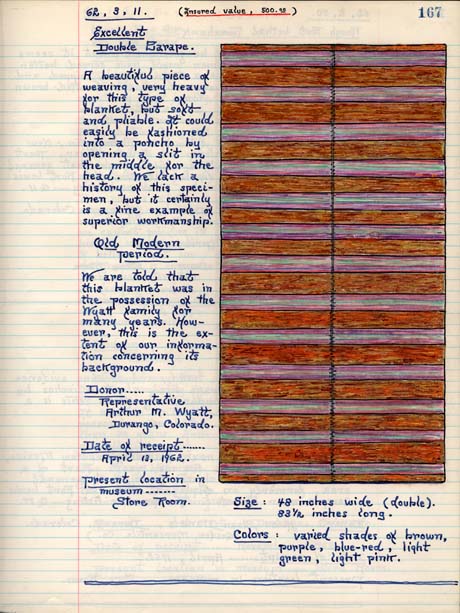 62, 3, 11.
(Insured value, 500.00)
167
Excellent
Double Sarape.
A beautiful piece of
weaving, very heavy
for this type of
blanket, but soft
and pliable. It could
easily be fashioned
into a poncho by
opening a slit in
the middle for the
head. We lack a
history of this speci-
men, but it certainly
is a fine example of
superior workmanship.
Old Modern
period.
We are told that
this blanket was in
the possession of the
Wyatt family for
many years. How-
ever, this is the ex-
tent of our informa-
tion concerning its
background.
Donor.....
Representative
Arthur M. Wyatt,
Durango, Colorado.
Date of receipt......
April 13, 1962.
Present location in
museum -------
Store Room.
Size: 48 inches wide (double).
83½ inches long.
Colors: varied shades of brown,
purple, blue-red, light
green, light pink.